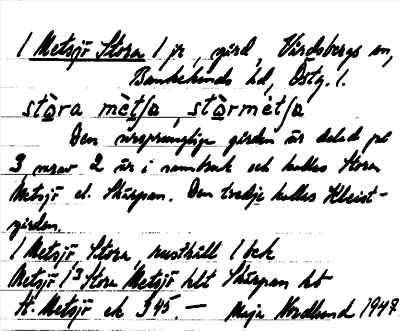 1 Metsjö Stora 1 jr, gård, Vårdsbergs sn,
Bankekinds hd, Östg. l.
stòra mètʃa, stòrmètʃa
Den ursprungliga gården är delad på
3, varav 2 är i sambruk och kallas Stora
Metsjö el. Skärpan. Den tredje kallas Kleist-
gården.
1 Metsjö, Stora, rusthåll 1 bek
Metsjö 1³ Stora Metsjö klt Skärpan kb
St. Metsjö ek 345. — Meja Nordlund 1947.